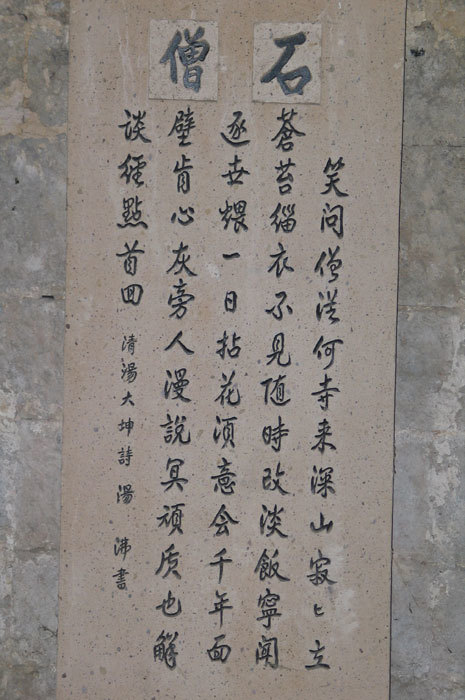 石僧
笑问僧從何寺来深山寂〻立
蒼苔缁衣不见随時改淡飯寧闻
逐世煨一日拈花须意会千年面
壁肯心灰旁人漫說冥頑质也解
談經點首回
清湯大坤詩 湯沸書